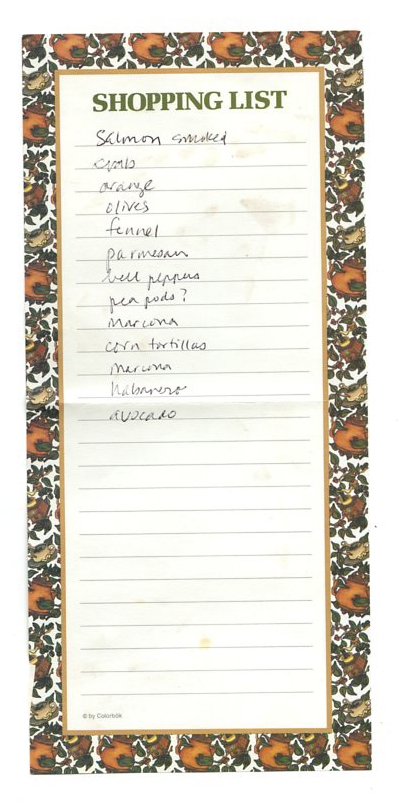 SHOPPING LIST
Salmon smoked
orange
olives
fennel
parmesan
bell peppers
pea pods?
Marcona
corn tortillas
Marcona
habanero
avocado
© by Colorbök